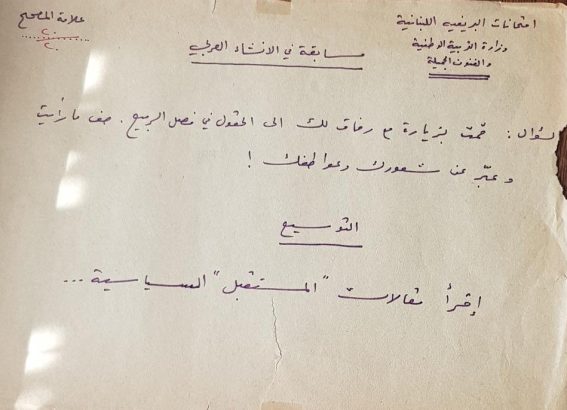 امتحانات البريفيه اللبنانية
وزارة التربية الوطنية
والفنون الجميلة
علامة المصحح
٢٠
٢٠
مسابقة في الانشاء العربي
السؤال: قمت بزيارة مع رفاق لك الى الحقول في فصل الربيع. صف ما رأيت
وعبّر عن شعورك وعواطفك!
التوسيع
إقرأ مقالات "المستقبل" السياسية...